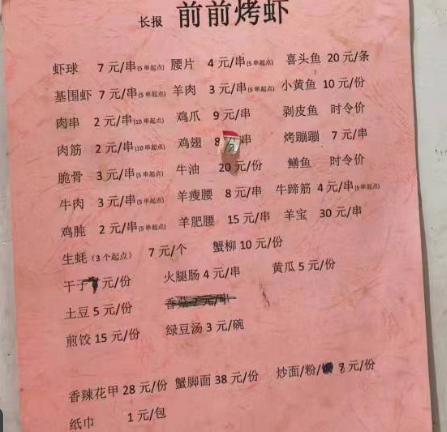 长报 前前烤虾
虾球 7 元/串(5串起点) 腰片 4 元/串(5串起点) 喜头鱼 20 元/条
基围虾 7 元/串(5串起点) 羊肉 3 元/串(5串起点) 小黄鱼 10 元/份
肉串 2 元/串(10串起点) 鸡爪 9 元/串 剥皮鱼 时令价
肉筋 2 元/串(10串起点) 鸡翅 串 烤蹦蹦 7 元/串
脆骨 3 元/串(5串起点) 牛油 20 元/份 鳝鱼 时令价
牛肉 3 元/串(5串起点) 羊瘦腰 8 元/串 牛蹄筋 4 元/串(5串起点)
鸡肫 2 元/串(5串起点) 羊肥腰 15 元/串 羊宝 30 元/串
生蚝(3个起点) 7 元/个 蟹柳 10 元/份
干子 元/份 火腿肠 4 元/串 黄瓜 5 元/份
土豆 5 元/份 香菇 2 元/串
煎饺 15 元/份 绿豆汤 3 元/碗
香辣花甲 28 元/份 蟹脚面 38 元/份 炒面/粉/ 8 元/份
纸巾 1 元/包